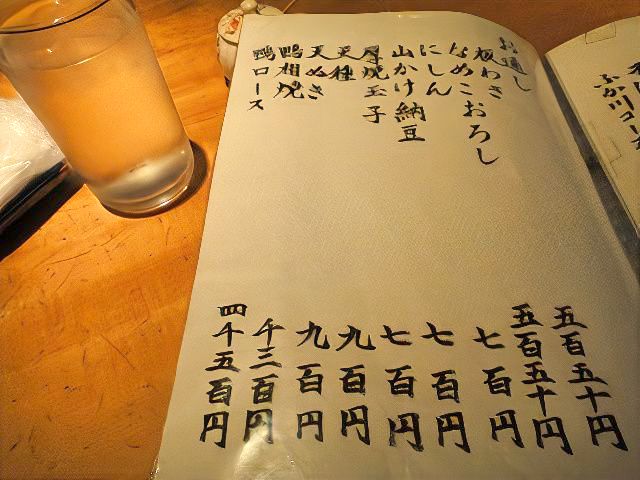 お通し
板わさ
なめこおろし
にしん
山かけ納豆
厚焼玉子
天種
天ぬき
鴨相焼
鴨ロース
五百五十円
五百五十円
七百円
七百円
七百円
九百円
九百円
千三百円
四千五百円
ふか川